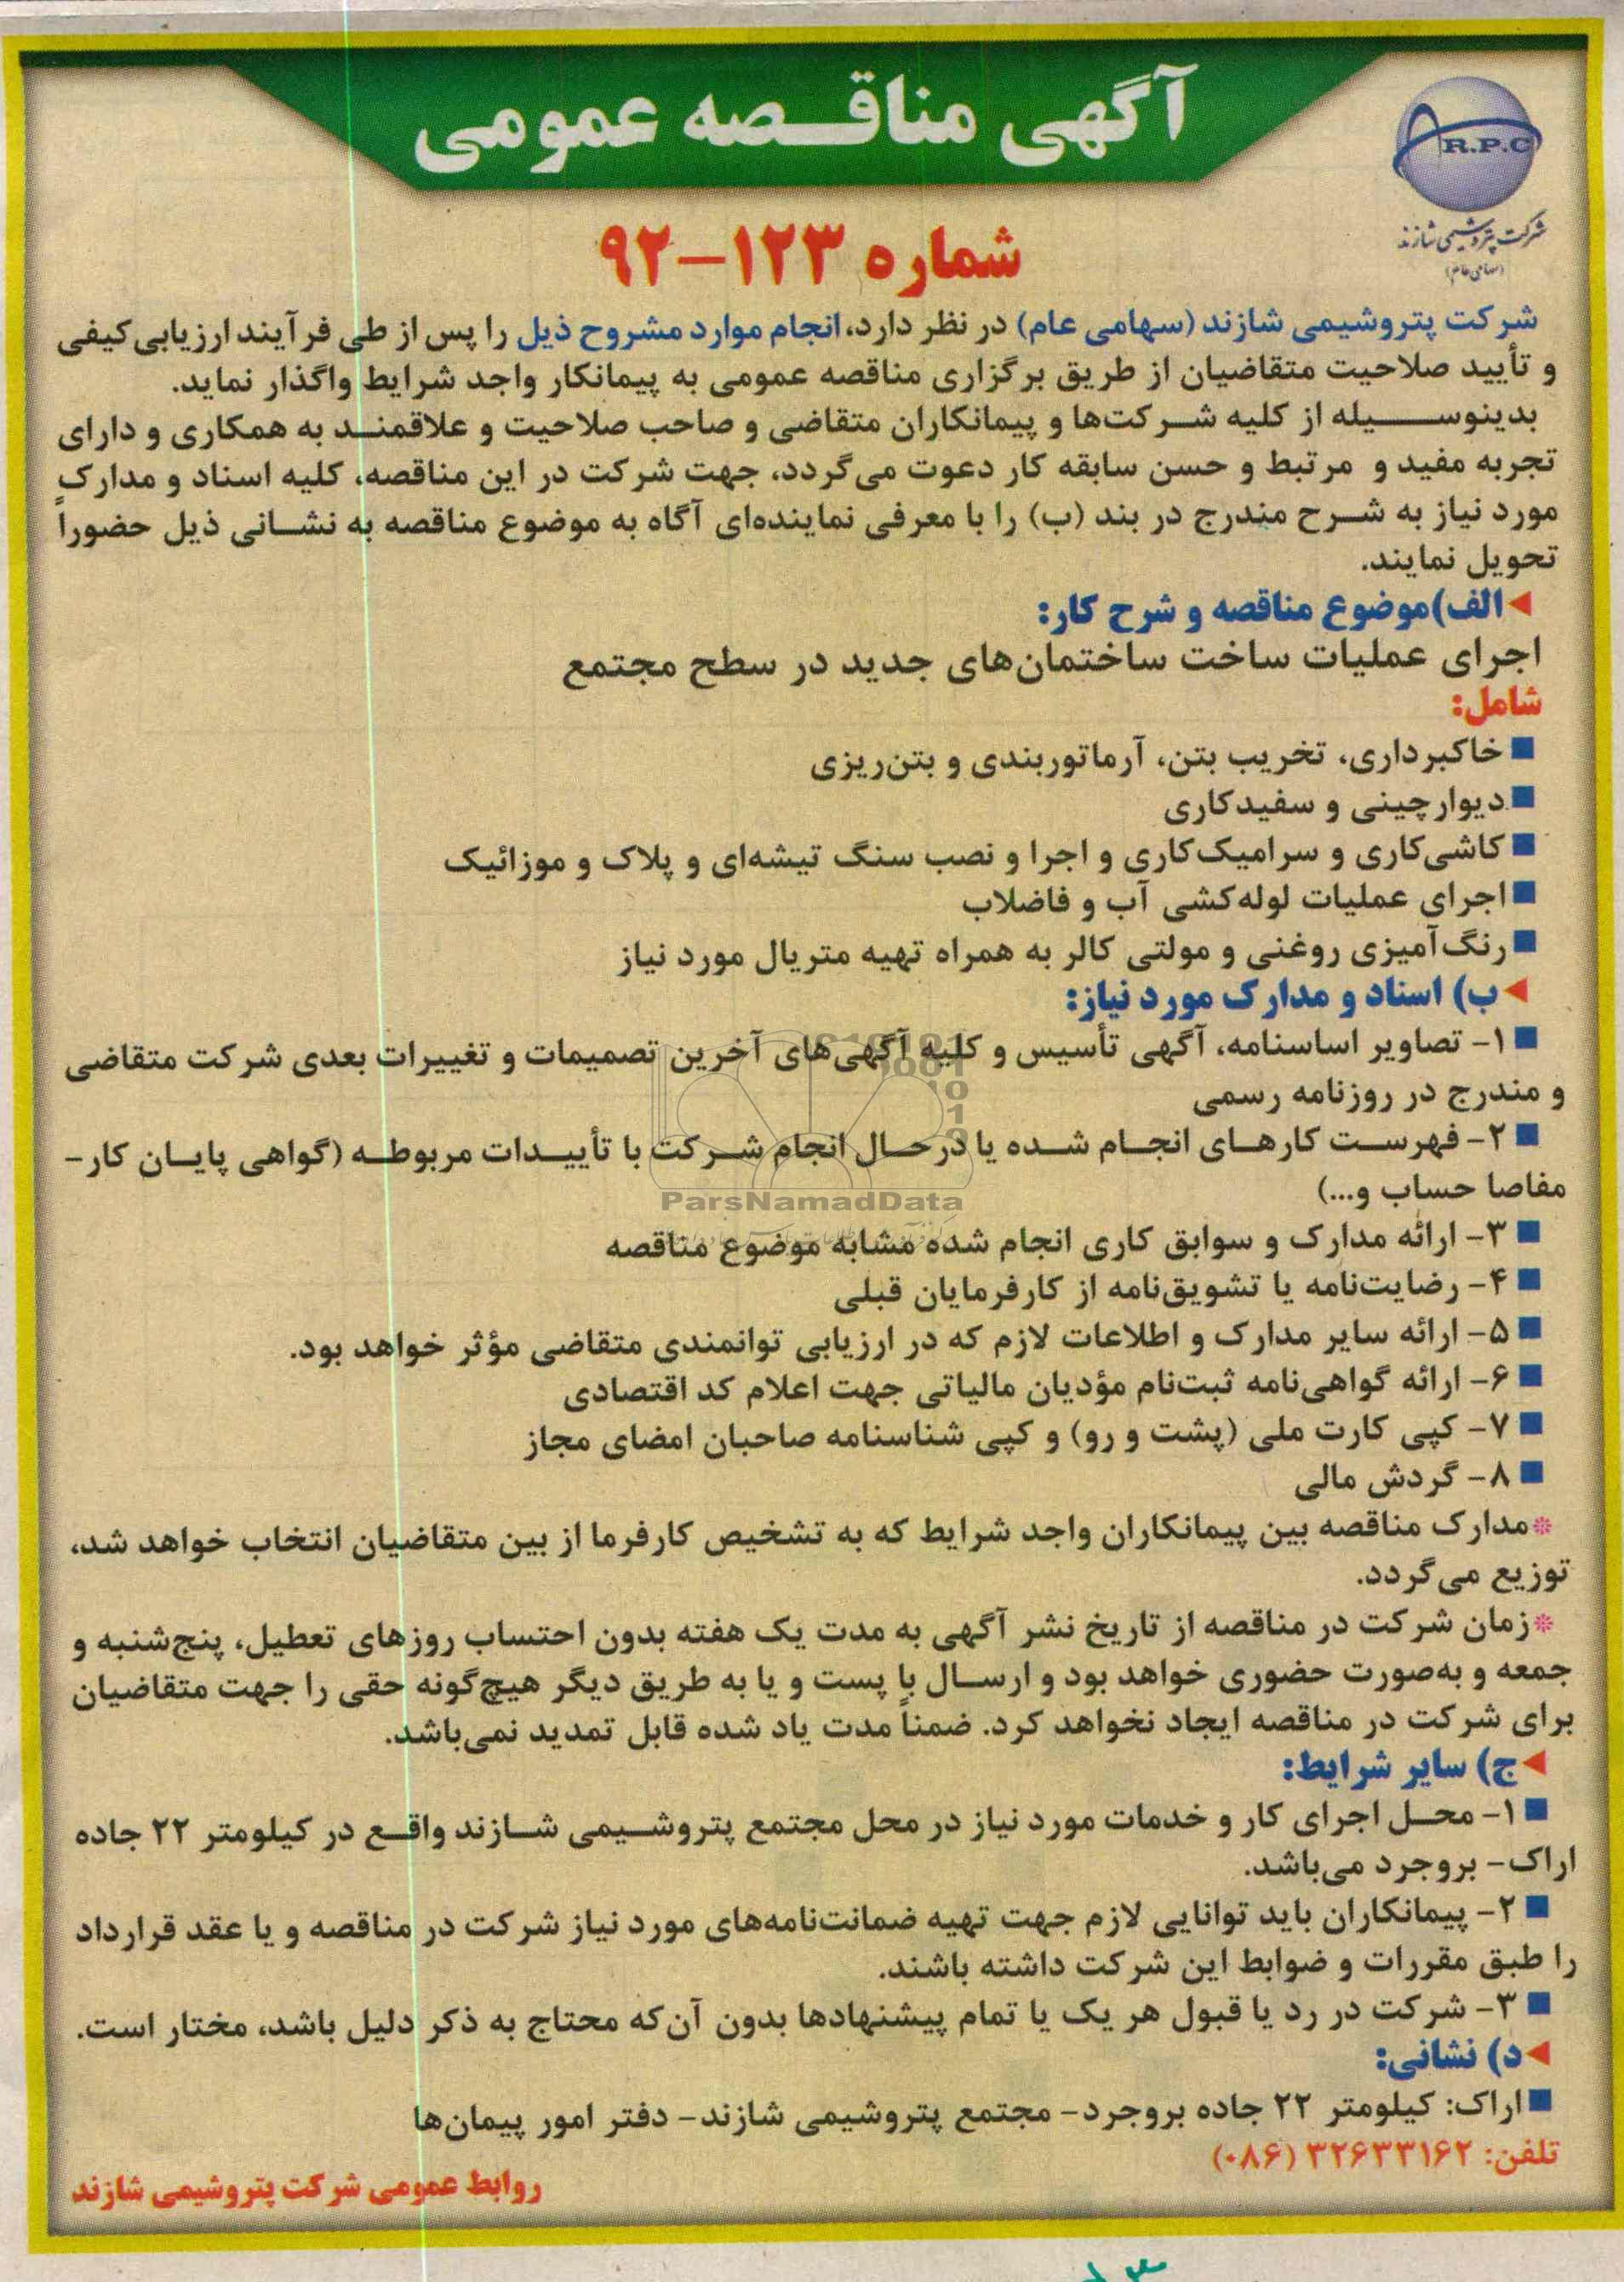 آگهی مناقصه عمومی
R.P.C
شرکت پتروشیمی شازند
(سهامی عام)
شماره ۱۲۳-۹۲
شرکت پتروشیمی شازند (سهامی عام) در نظر دارد، انجام موارد مشروح ذیل را پس از طی فرآیند ارزیابی کیفی
و تأیید صلاحیت متقاضیان از طریق برگزاری مناقصه عمومی به پیمانکار واجد شرایط واگذار نماید.
بدینوسیله از کلیه شرکت‌ها و پیمانکاران متقاضی و صاحب صلاحیت و علاقمند به همکاری و دارای
تجربه مفید و مرتبط و حسن سابقه کار دعوت می‌گردد، جهت شرکت در این مناقصه، کلیه اسناد و مدارک
مورد نیاز به شرح مندرج در بند (ب) را با معرفی نماینده‌ای آگاه به موضوع مناقصه به نشانی ذیل حضوراً
تحویل نمایند.
الف)موضوع مناقصه و شرح کار:
اجرای عملیات ساخت ساختمان‌های جدید در سطح مجتمع
شامل:
■ خاکبرداری، تخریب بتن، آرماتوربندی و بتن‌ریزی
■ دیوارچینی و سفیدکاری
■ کاشی‌کاری و سرامیک‌کاری و اجرا و نصب سنگ تیشه‌ای و پلاک و موزائیک
■ اجرای عملیات لوله‌کشی آب و فاضلاب
■ رنگ‌آمیزی روغنی و مولتی کالر به همراه تهیه متریال مورد نیاز
ب) اسناد و مدارک مورد نیاز:
■ ۱- تصاویر اساسنامه، آگهی تأسیس و کلیه آگهی‌های آخرین تصمیمات و تغییرات بعدی شرکت متقاضی
و مندرج در روزنامه رسمی
■ ۲- فهرست کارهای انجام شده یا درحال انجام شرکت با تأییدات مربوطه (گواهی پایان کار-
مفاصا حساب و...)
ParsNamadData
■ ۳- ارائه مدارک و سوابق کاری انجام شده مشابه موضوع مناقصه
■ ۴- رضایت‌نامه یا تشویق‌نامه از کارفرمایان قبلی
■ ۵- ارائه سایر مدارک و اطلاعات لازم که در ارزیابی توانمندی متقاضی مؤثر خواهد بود.
■ ۶- ارائه گواهی‌نامه ثبت‌نام مؤدیان مالیاتی جهت اعلام کد اقتصادی
■ ۷- کپی کارت ملی (پشت و رو) و کپی شناسنامه صاحبان امضای مجاز
■ ۸- گردش مالی
*مدارک مناقصه بین پیمانکاران واجد شرایط که به تشخیص کارفرما از بین متقاضیان انتخاب خواهد شد،
توزیع می‌گردد.
*زمان شرکت در مناقصه از تاریخ نشر آگهی به مدت یک هفته بدون احتساب روزهای تعطیل، پنج‌شنبه و
جمعه و به‌صورت حضوری خواهد بود و ارسال با پست و یا به طریق دیگر هیچ‌گونه حقی را جهت متقاضیان
برای شرکت در مناقصه ایجاد نخواهد کرد. ضمناً مدت یاد شده قابل تمدید نمی‌باشد.
ج) سایر شرایط:
■ ۱- محل اجرای کار و خدمات مورد نیاز در محل مجتمع پتروشیمی شازند واقع در کیلومتر ۲۲ جاده
اراک- بروجرد می‌باشد.
■ ۲- پیمانکاران باید توانایی لازم جهت تهیه ضمانت‌نامه‌های مورد نیاز شرکت در مناقصه و یا عقد قرارداد
را طبق مقررات و ضوابط این شرکت داشته باشند.
■ ۳- شرکت در رد یا قبول هر یک یا تمام پیشنهادها بدون آن‌که محتاج به ذکر دلیل باشد، مختار است.
د) نشانی:
■ اراک: کیلومتر ۲۲ جاده بروجرد- مجتمع پتروشیمی شازند- دفتر امور پیمان‌ها
تلفن: ۳۲۶۳۳۱۶۲ (۰۸۶)
روابط عمومی شرکت پتروشیمی شازند